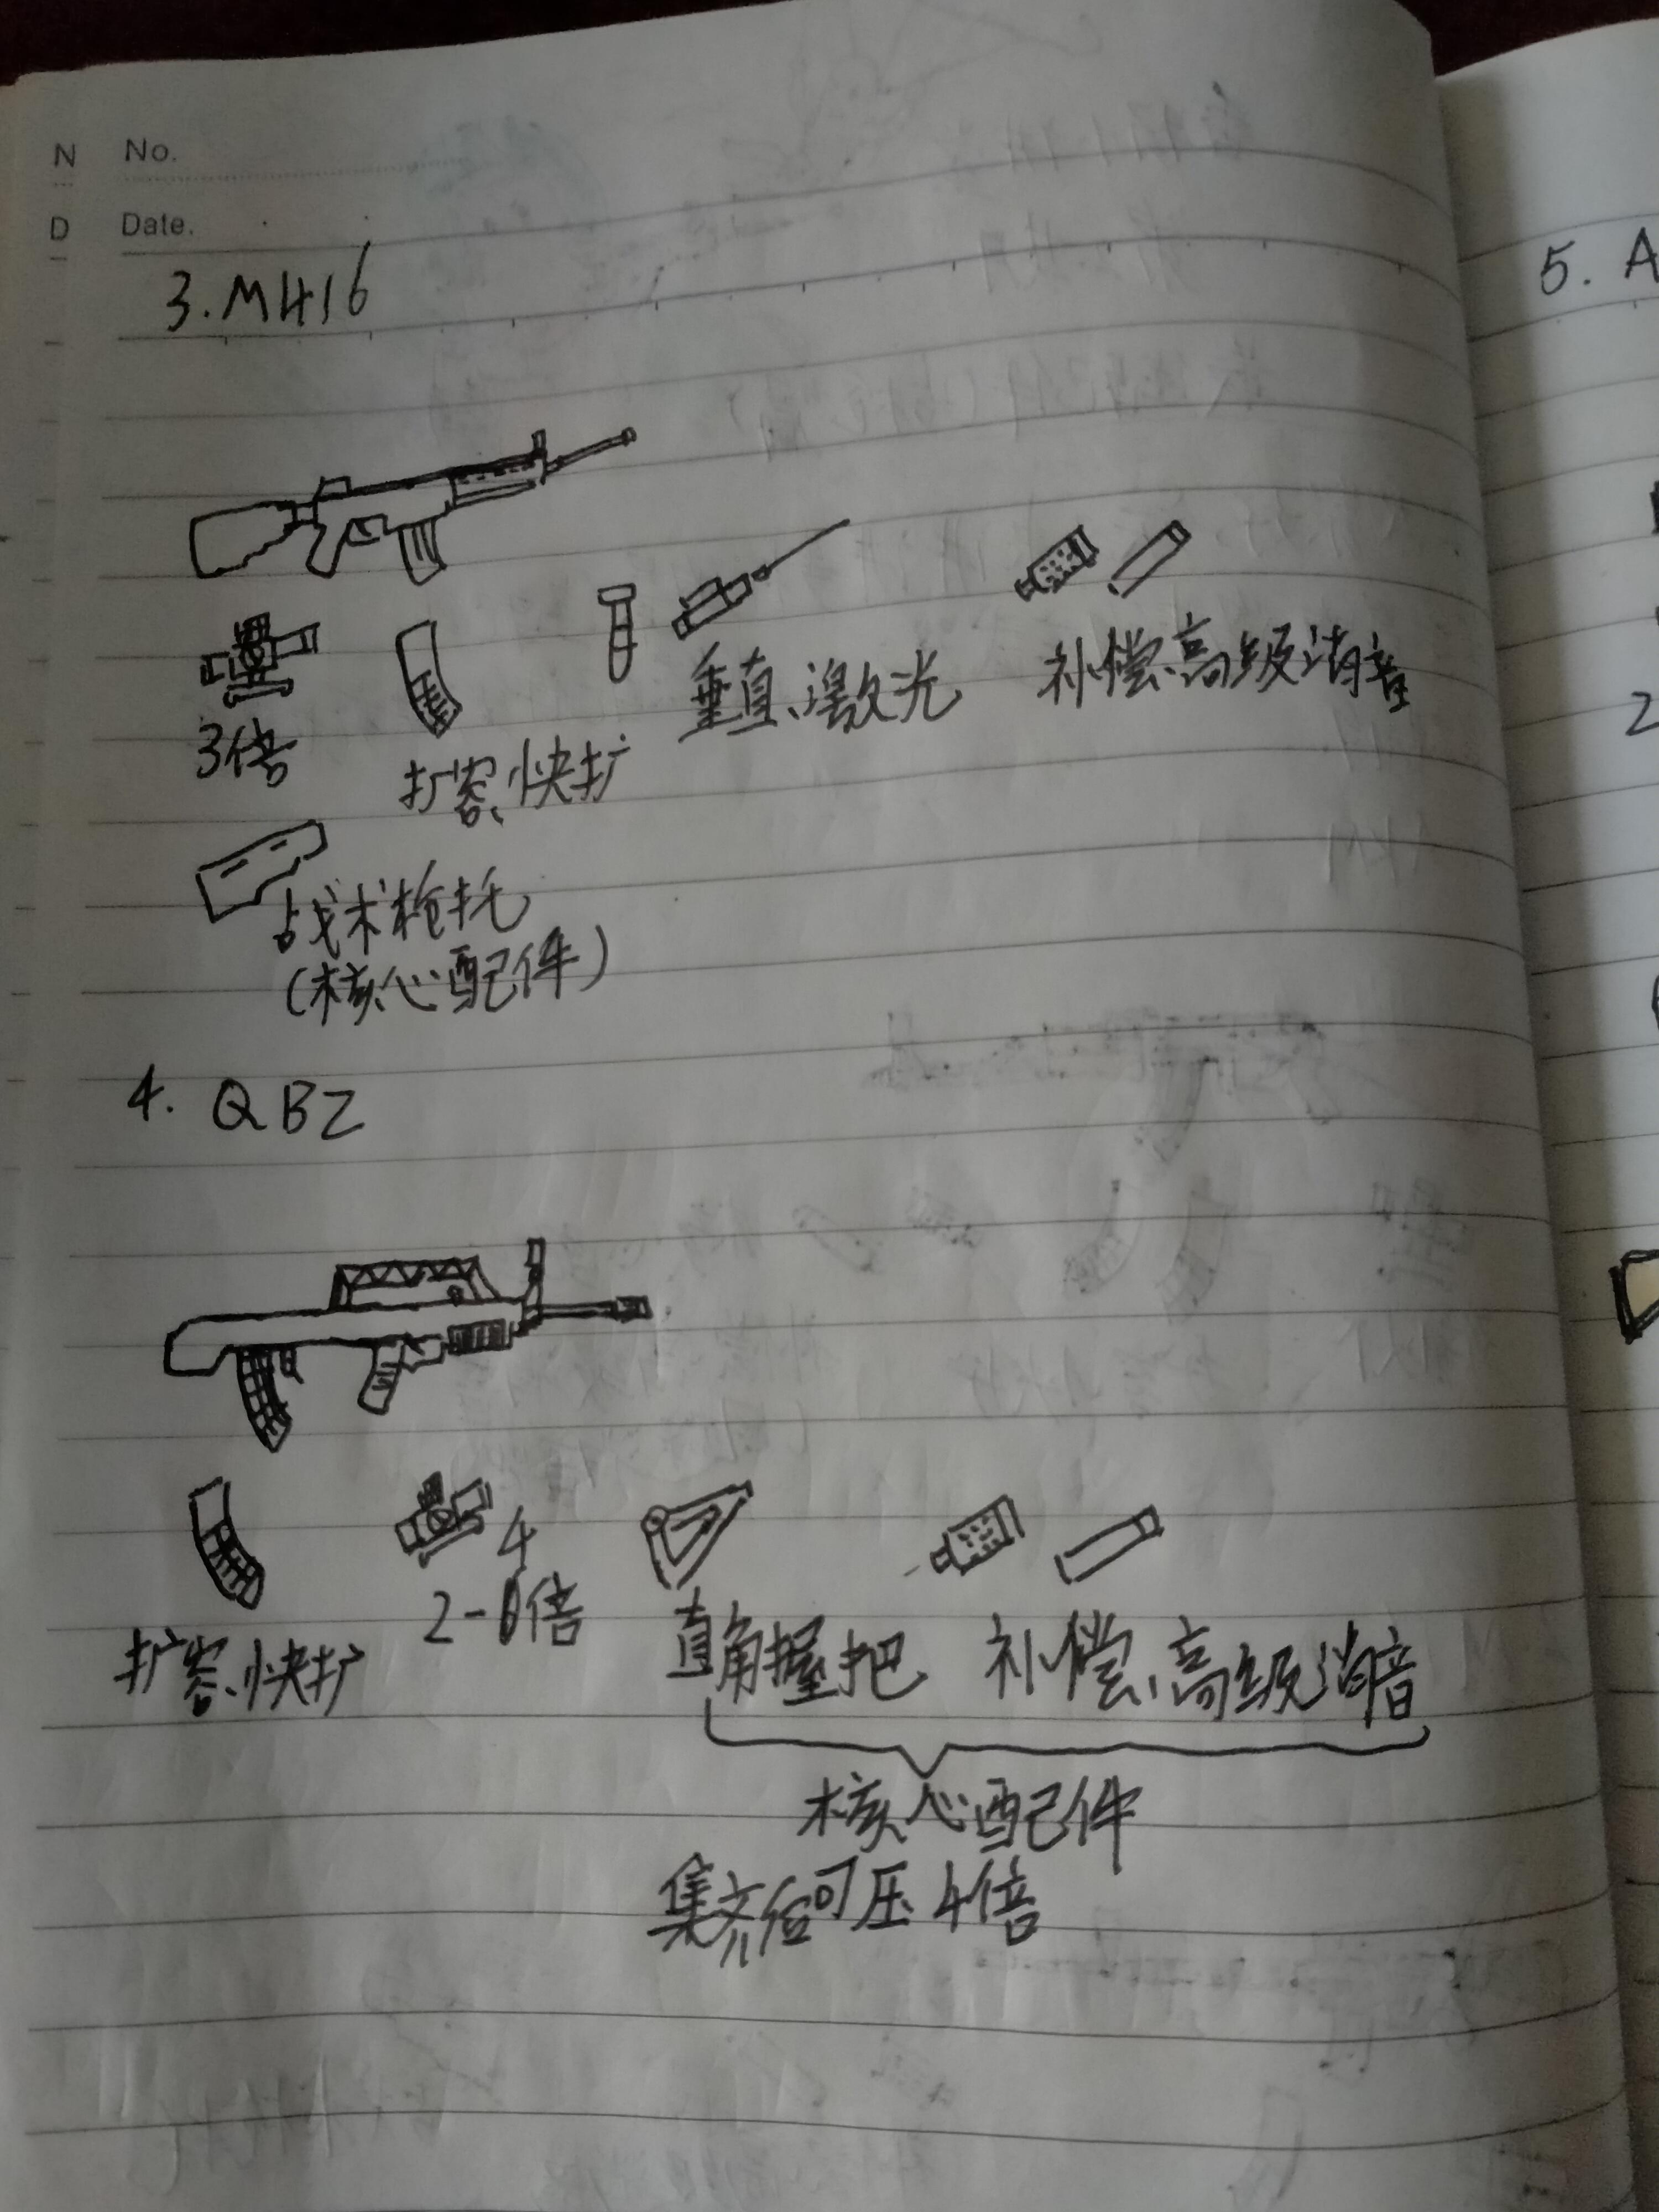 N No.
D Date.
3.M416
垂直、激光
补偿、高级消音
3倍
扩容、快扩
战术枪托
(核心配件)
4. QBZ
4
2-倍
扩容、快扩
直角握把
补偿、高级消音
核心配件
集齐后可压4倍
5. A
2